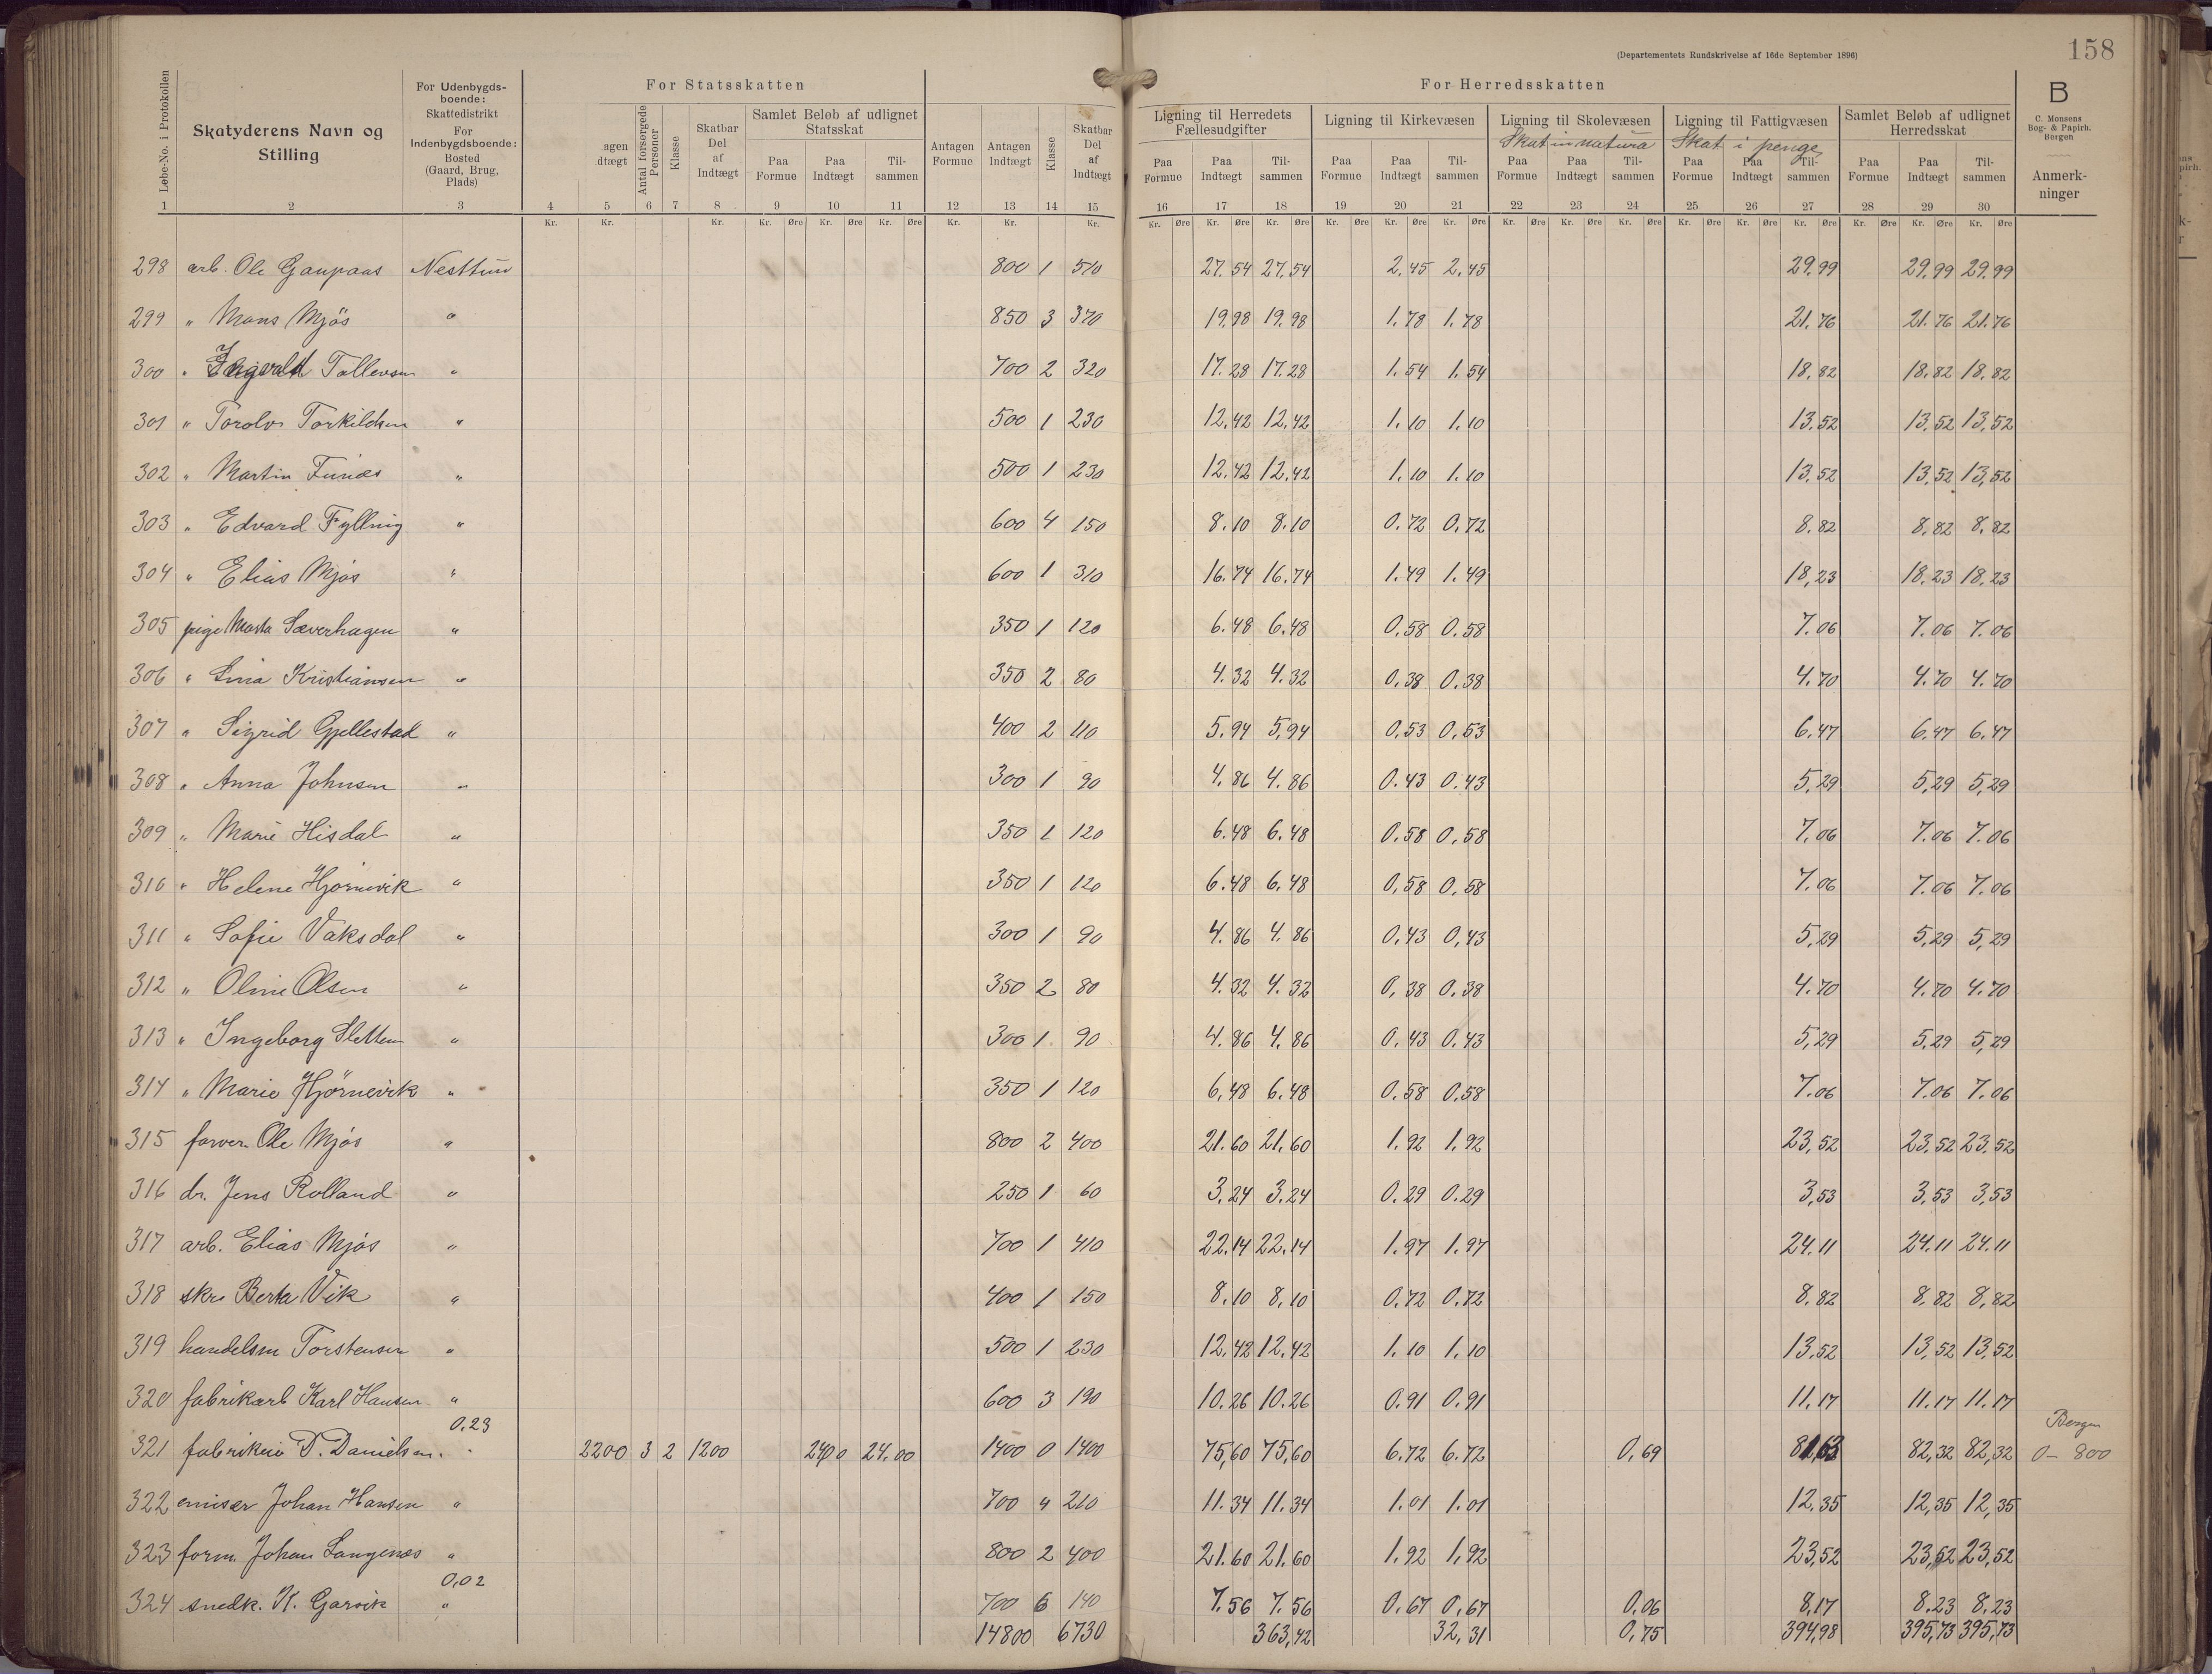 158
(Departementets Rundskrivelse af 16de September 1896)
For Statsskatten
For Herredsskatten
B
C. Monsens Bog- & Papirh. Bergen
Løbe-No. i Protokollen
Skatyderens Navn og Stilling
For Udenbygdsboende: Skattedistrikt For Indenbygdsboende: Bosted (Gaard, Brug, Plads)
agen dtægt
Antal forsørgede Personer
Klasse
Skatbar Del af Indtægt
Samlet Beløb af udlignet Statsskat
Antagen Formue
Antagen Indtægt
Klasse
Skatbar Del af Indtægt
Ligning til Herredets Fællesudgifter
Ligning til Kirkevæsen
Ligning til Skolevæsen
Skat in natura
Ligning til Fattigvæsen
Skat i penge
Samlet Beløb af udlignet Herredsskat
Anmerkninger
Paa Formue Paa Indtægt Tilsammen
Paa Formue Paa Indtægt Tilsammen Paa Formue Paa Indtægt Tilsammen Paa Formue Paa Indtægt Tilsammen Paa Formue Paa Indtægt Tilsammen Paa Formue Paa Indtægt Tilsammen
1 2 3 4 5 6 7 8 9 10 11 12 13 14 15 16 17 18 19 20 21 22 23 24 25 26 27 28 29 30
Kr. Kr. Kr. Kr. Øre Kr. Øre Kr. Øre Kr. Kr. Kr. Kr. Øre Kr. Øre Kr. Øre Kr. Øre Kr. Øre Kr. Øre Kr. Øre Kr. Øre Kr. Øre Kr. Øre Kr. Øre Kr. Øre Kr. Øre Kr. Øre Kr. Øre
298 arb. Ole Gaupaas Nesttun 800 1 510 27.54 27.54 2,45 2,45 29.99 29,99 29.99
299 " Mons Mjøs " 850 3 370 19.98 19.98 1.78 1.78 21.76 21.76 21.76
300 " Ingvald Tollevsen " 700 2 320 17.28 17.28 1.54 1.54 18,82 18.82 18,82
301 " Torolv Torkildsen " 500 1 230 12,42 12,42 1.10 1.10 13,52 13,52 13,52
302 " Martin " 500 1 230 12.42 12,42 1.10 1.10 13,52 13,52 13,52
303 " Edvard Fylling " 600 4 150 8.10 8.10 0.72 0,72 8.82 8,82 8,82
304 " Elias Mjøs " 600 1 310 16.74 16.74 1.49 1.49 18,23 18.23 18.23
305 pige Marta Sæverhagen " 350 1 120 6.48 6.48 0.58 0.58 7.06 7.06 7.06
306 " Lina Kristiansen " 350 2 80 4.32 4.32 0.38 0.38 4.70 4.70 4.70
307 " Sigrid Gjellestad " 400 2 110 5.94 5,94 0,53 0,53 6.47 6.47 6.47
308 " Anna Johnsen " 300 1 90 4.86 4.86 0.43 0.43 5,29 5,29 5,29
309 " Marie Hisdal " 350 1 120 6.48 6.48 0.58 0,58 7,06 7.06 7.06
310 " Helene Hjørnevik " 350 1 120 6.48 6,48 0,58 0.58 7.06 7.06 7.06
311 " Sofie Vaksdal " 300 1 90 4.86 4.86 0,43 0,43 5,29 5,29 5,29
312 " Oline Olsen " 350 2 80 4.32 4.32 0,38 0.38 4.70 4.70 4.70
313 " Ingeborg Sletten " 300 1 90 4.86 4,86 0,43 0.43 5,29 5.29 5,29
314 " Marie Hjørnevik " 350 1 120 6,48 6.48 0.58 0.58 7.06 7.06 7.06
315 farver Ole Mjøs " 800 2 400 21.60 21,60 1.92 1.92 23,52 23,52 23,52
316 dr. Jens Rolland " 250 1 60 3,24 3.24 0.29 0.29 3,53 3.53 3,53
317 arb. Elias Mjøs " 700 1 410 22.14 22.14 1.97 1.97 24.11 24.11 24.11
318 skr. Berta Vik " 400 1 150 8.10 8,10 0.72 0.72 8.82 8,82 8,82
319 handelsm Torstensen " 500 1 230 12,42 12,42 1.10 1.10 13,52 13,52 13,52
320 fabrikarb Karl Hansen " 600 3 190 10.26 10.26 0.91 0.91 11.17 11.17 11.17
0.23 Bergen
321 fabrikeier D. Danielsen. " 2200 3 2 1200 2400 24.00 1400 0 1400 75,60 75,60 6.72 6.72 0,69 81,63 82,32 82,32 0 – 800
322 emisær Johan Hansen " 700 4 210 11.34 11.34 1.01 1.01 12.35 12,35 12,35
323 form. Johan Langenes " 800 2 400 21.60 21,60 1,92 1,92 23,52 23,52 23,52
0,02
324 snedk. K. Garvik " 700 6 140 7.56 7.56 0,67 0,67 0,06 8,17 8.23 8.23
14800 6730 363,42 32,31 0,75 394,98 395,73 395,73